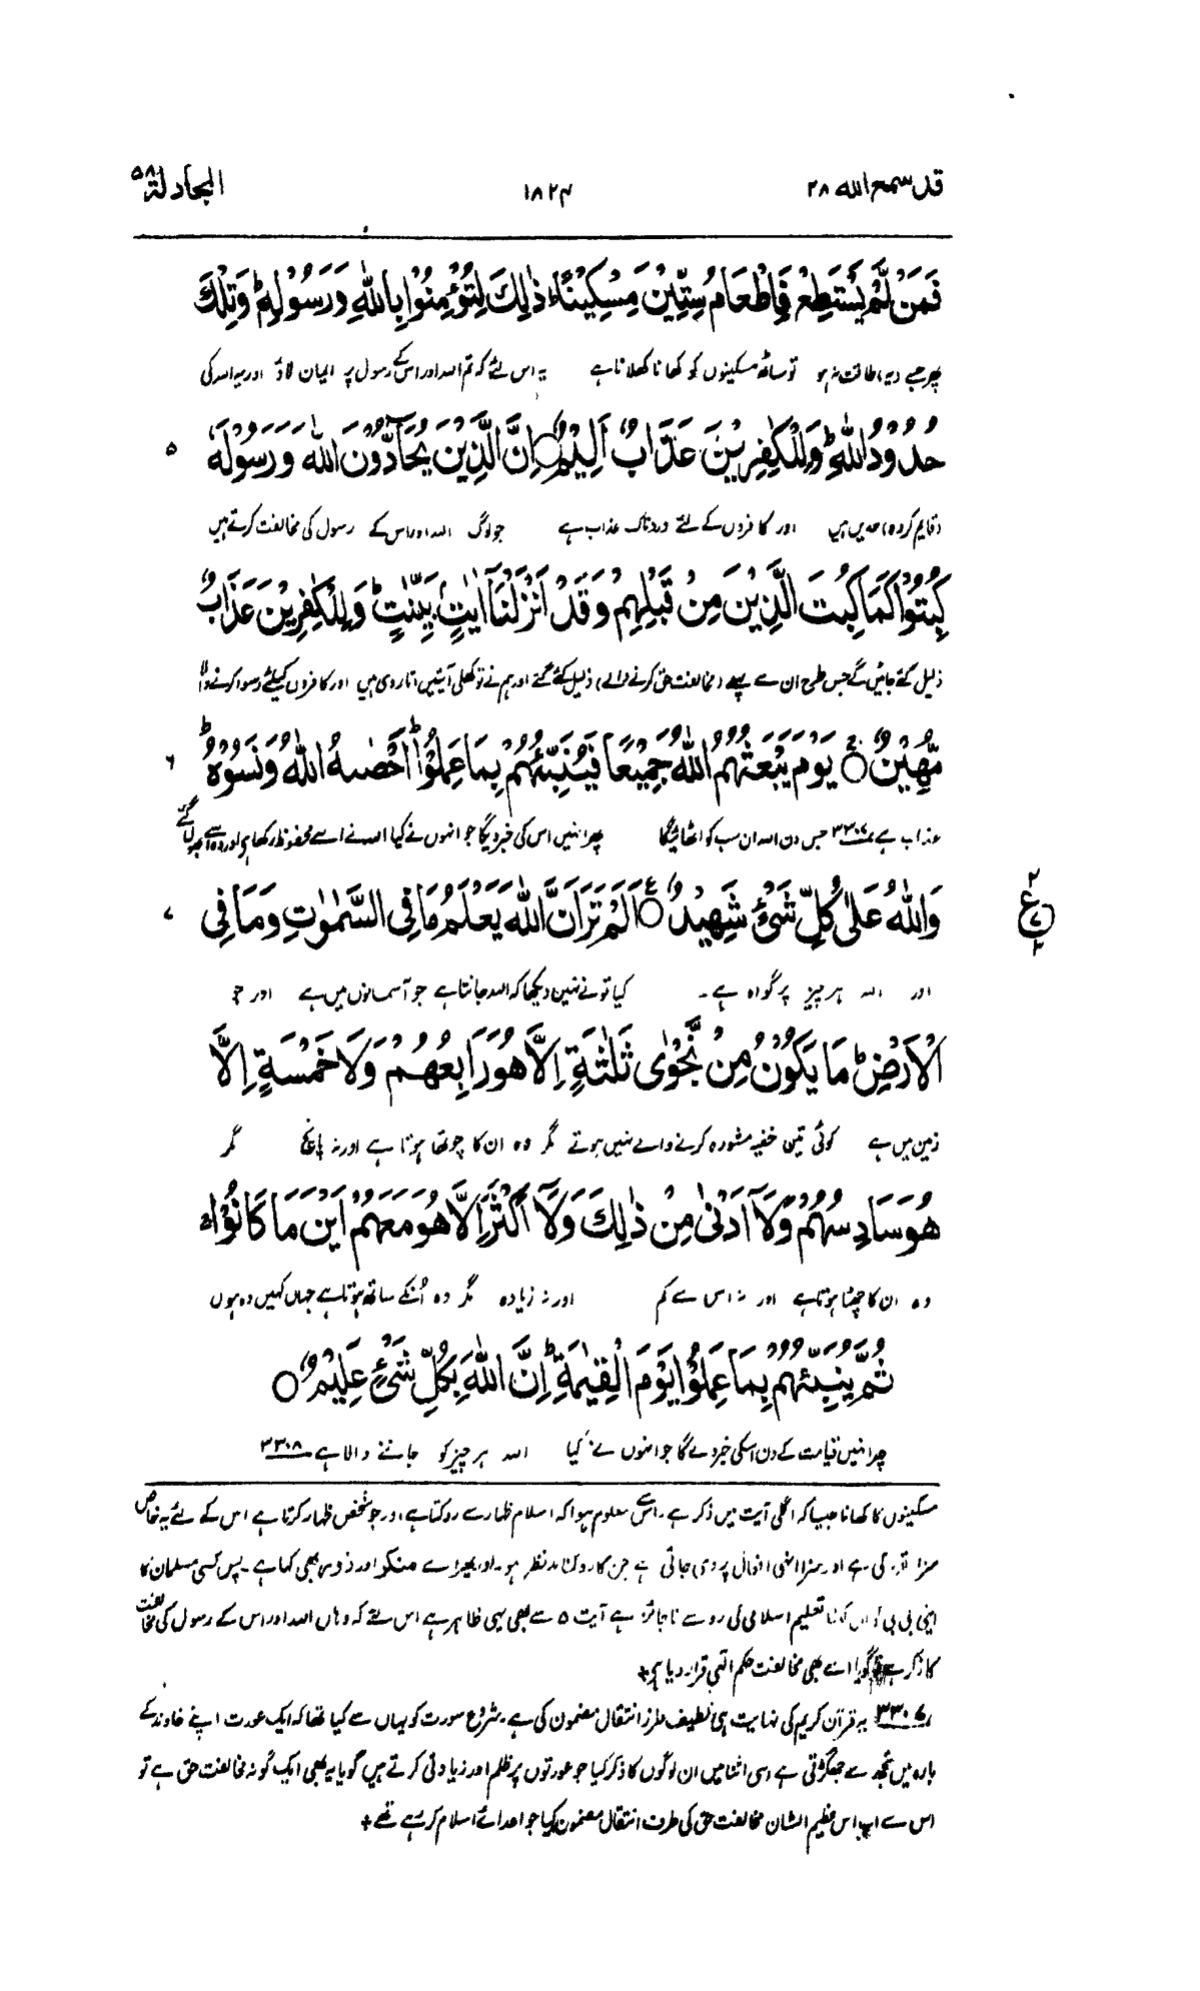 قد سمع اللہ ۲۸ ۱۸۲۴ المجادلۃ ۵۸
فَمَنْ لَّمْ يَسْتَطِعْ فَاِطْعَامُ سِتِّيْنَ مِسْكِيْنًا ذٰلِكَ لِتُؤْمِنُوْا بِاللّٰهِ وَرَسُوْلِهٖ ؕ وَتِلْكَ
پھر جسے (یہ) طاقت نہ ہو تو ساٹھ مسکینوں کو کھانا کھلانا ہے یہ اس لئے کہ تم اللہ اور اس کے رسول پر ایمان لاؤ اور یہ اللہ کی
حُدُوْدُ اللّٰهِ ؕ وَلِلْكٰفِرِيْنَ عَذَابٌ اَلِيْمٌ ○ اِنَّ الَّذِيْنَ يُحَآدُّوْنَ اللّٰهَ وَرَسُوْلَهٗ ۵
(قایم کردہ) حدیں ہیں اور کافروں کے لئے دردناک عذاب ہے جو لوگ اللہ اور اس کے رسول کی مخالفت کرتے ہیں
كُبِتُوْا كَمَا كُبِتَ الَّذِيْنَ مِنْ قَبْلِهِمْ وَقَدْ اَنْزَلْنَآ اٰيٰتٍۢ بَيِّنٰتٍ ؕ وَلِلْكٰفِرِيْنَ عَذَابٌ
ذلیل کئے جائیں گے جس طرح ان سے پہلے (مخالفت حق کرنے والے) ذلیل کئے گئے اور ہم نے تو کھلی آیتیں اتار دی ہیں اور کافروں کیلئے رسوا کرنے والا
مُّهِيْنٌ ○ يَوْمَ يَبْعَثُهُمُ اللّٰهُ جَمِيْعًا فَيُنَبِّئُهُمْ بِمَا عَمِلُوْا ؕ اَحْصٰىهُ اللّٰهُ وَنَسُوْهُ ؕ ۶
عذاب ہے ۳۳۰۷ جس دن اللہ ان سب کو اٹھائیگا پھر انہیں اس کی خبر دیگا جو انہوں نے کیا اللہ نے اسے محفوظ رکھا ہے اور وہ اسے بھول گئے
وَاللّٰهُ عَلٰى كُلِّ شَيْءٍ شَهِيْدٌ ○ اَلَمْ تَرَ اَنَّ اللّٰهَ يَعْلَمُ مَا فِي السَّمٰوٰتِ وَمَا فِي ۷
۲ ع ۲
اور اللہ ہر چیز پر گواہ ہے۔ کیا تو نے نہیں دیکھا کہ اللہ جانتا ہے جو آسمانوں میں ہے اور جو
الْاَرْضِ ؕ مَا يَكُوْنُ مِنْ نَّجْوٰى ثَلٰثَةٍ اِلَّا هُوَ رَابِعُهُمْ وَلَا خَمْسَةٍ اِلَّا
زمین میں ہے کوئی تین خفیہ مشورہ کرنے والے نہیں ہوتے مگر وہ ان کا چوتھا ہوتا ہے اور نہ پانچ مگر
هُوَ سَادِسُهُمْ وَلَآ اَدْنٰى مِنْ ذٰلِكَ وَلَآ اَكْثَرَ اِلَّا هُوَ مَعَهُمْ اَيْنَ مَا كَانُوْا
وہ ان کا چھٹا ہوتا ہے اور نہ اس سے کم اور نہ زیادہ مگر وہ اُنکے ساتھ ہوتا ہے جہاں کہیں وہ ہوں
ثُمَّ يُنَبِّئُهُمْ بِمَا عَمِلُوْا يَوْمَ الْقِيٰمَةِ ؕ اِنَّ اللّٰهَ بِكُلِّ شَيْءٍ عَلِيْمٌ ○
پھر انہیں قیامت کے دن اسکی خبر دے گا جو انہوں نے کیا اللہ ہر چیز کو جاننے والا ہے ۳۳۰۸
مسکینوں کا کھانا جیسا کہ اگلی آیت میں ذکر ہے۔ اس سے معلوم ہوا کہ اسلام ظہار سے روکتا ہے، اور جو شخص ظہار کرتا ہے اس کے لئے یہ خاص
سزا مقرر کی ہے اور سزا انہی افعال پر دی جاتی ہے جن کا روکنا مدنظر ہو۔ اور پھر اسے منکر اور زور بھی کہا ہے۔ پس کسی مسلمان کا
اپنی بی بی کو ماں کہنا تعلیم اسلامی کی رو سے ناجائز ہے آیت ۵ سے بھی یہی ظاہر ہے اس لئے کہ وہاں اللہ اور اس کے رسول کی مخالفت
کا ذکر ہے گویا اسے بھی مخالفت حکم الٰہی قرار دیا ہے+
۳۳۰۷ یہ قرآن کریم کی نہایت ہی لطیف طرز انتقال مضمون کی ہے۔ شروع سورت کو یہاں سے کیا تھا کہ ایک عورت اپنے خاوند کے
بارہ میں تجھ سے جھگڑتی ہے اسی اثنا میں ان لوگوں کا ذکر کیا جو عورتوں پر ظلم اور زیادتی کرتے ہیں گویا یہ بھی ایک گونہ مخالفت حق ہے تو
اس سے اب اس عظیم الشان مخالفت حق کی طرف انتقال مضمون کیا جو اعدائے اسلام کر رہے تھے+